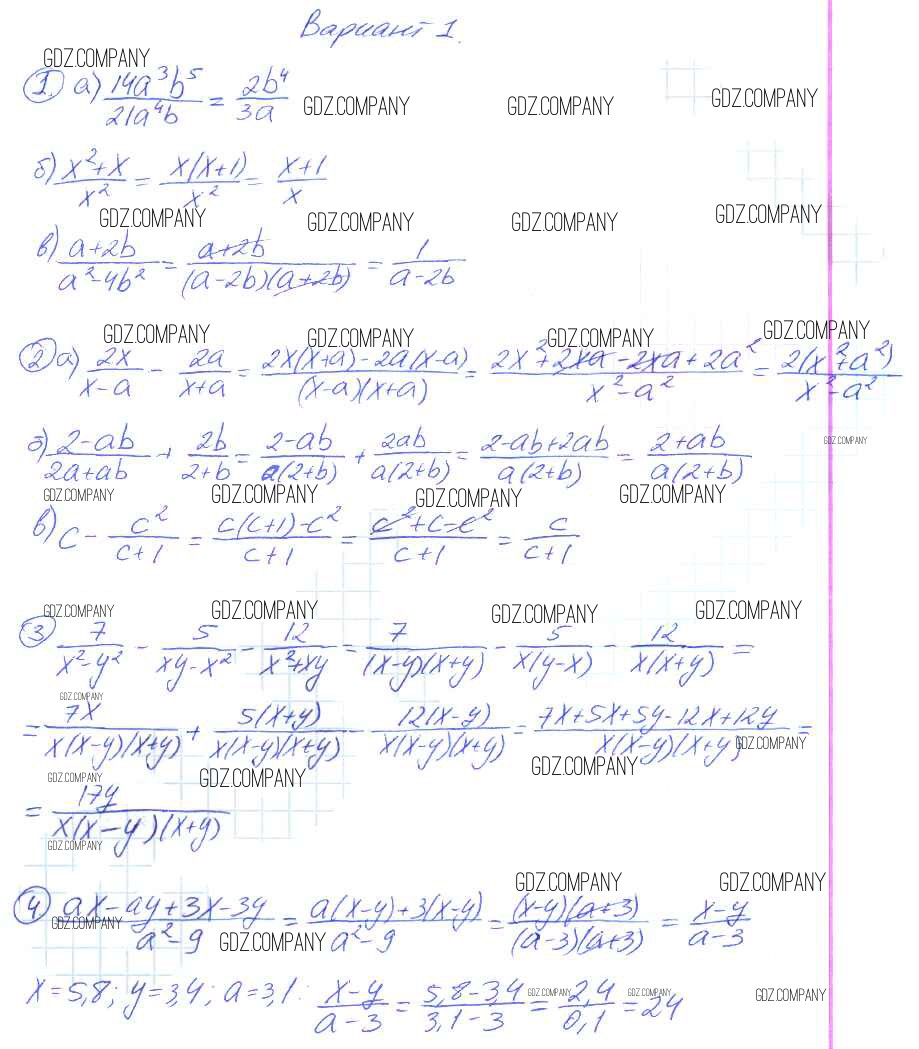 Вариант 1.
GDZ.COMPANY
1. а) 14a³b⁵/21a⁴b = 2b⁴/3a
GDZ.COMPANY GDZ.COMPANY GDZ.COMPANY
б) x²+x/x² = x(x+1)/x² = x+1/x
GDZ.COMPANY GDZ.COMPANY GDZ.COMPANY GDZ.COMPANY
в) a+2b/a²-4b² = a+2b/(a-2b)(a+2b) = 1/a-2b
GDZ.COMPANY GDZ.COMPANY GDZ.COMPANY GDZ.COMPANY
2 а) 2x/x-a - 2a/x+a = 2x(x+a)-2a(x-a)/(x-a)(x+a) = 2x²+2xa-2xa+2a²/x²-a² = 2(x²+a²)/x²-a²
б) 2-ab/2a+ab + 2b/2+b = 2-ab/a(2+b) + 2ab/a(2+b) = 2-ab+2ab/a(2+b) = 2+ab/a(2+b)
GDZ.COMPANY
GDZ.COMPANY GDZ.COMPANY GDZ.COMPANY GDZ.COMPANY
в) c - c²/c+1 = c(c+1)-c²/c+1 = c²+c-c²/c+1 = c/c+1
GDZ.COMPANY GDZ.COMPANY GDZ.COMPANY GDZ.COMPANY
3 7/x²-y² - 5/xy-x² - 12/x²+xy = 7/(x-y)(x+y) - 5/x(y-x) - 12/x(x+y) =
GDZ.COMPANY
= 7x/x(x-y)(x+y) + 5(x+y)/x(x-y)(x+y) - 12(x-y)/x(x-y)(x+y) = 7x+5x+5y-12x+12y/x(x-y)(x+y) =
GDZ.COMPANY
GDZ.COMPANY GDZ.COMPANY GDZ.COMPANY
= 17y/x(x-y)(x+y)
GDZ.COMPANY
GDZ.COMPANY GDZ.COMPANY
4 ax-ay+3x-3y/a²-9 = a(x-y)+3(x-y)/a²-9 = (x-y)(a+3)/(a-3)(a+3) = x-y/a-3
GDZ.COMPANY GDZ.COMPANY
x=5,8; y=3,4; a=3,1: x-y/a-3 = 5,8-3,4/3,1-3 = 2,4/0,1 = 24
GDZ.COMPANY GDZ.COMPANY GDZ.COMPANY